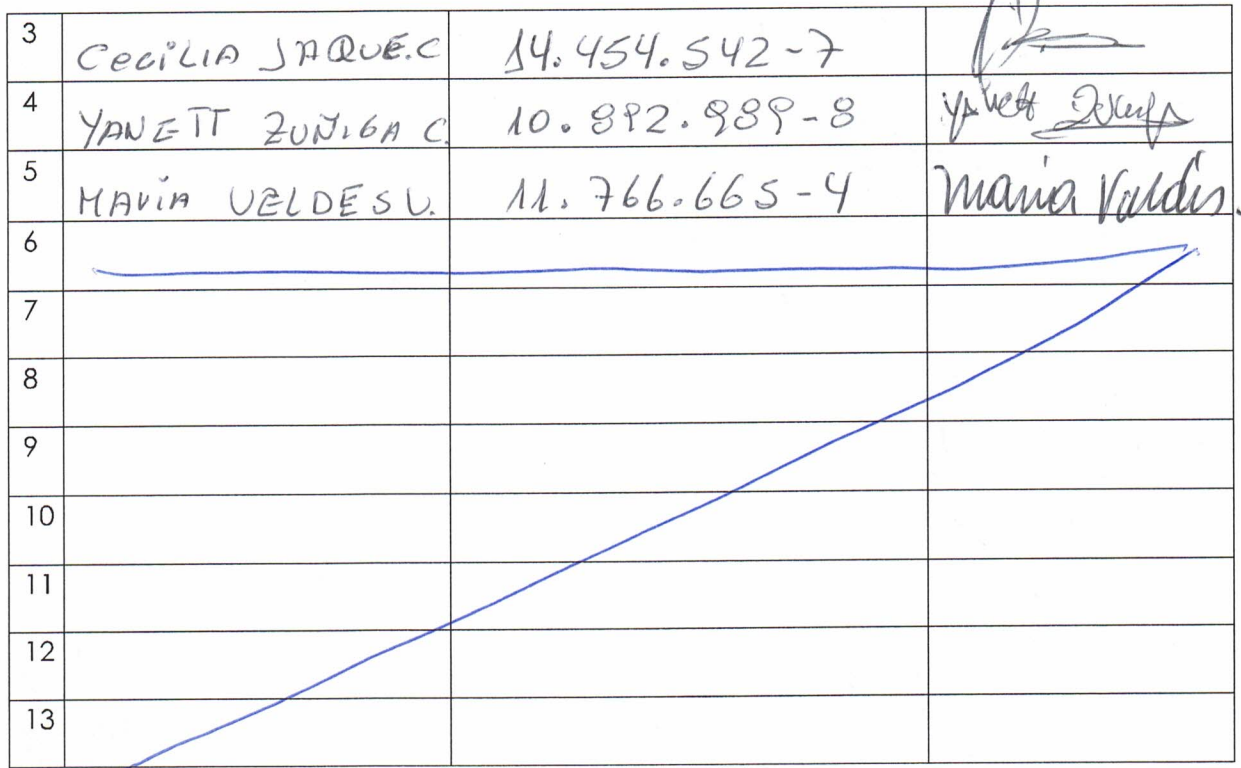 3 Cecilia JAQUE.C 14.454.542-7
4 YANETT ZUÑIGA C. 10.892.989-8 Yanett Zuñiga
5 MARIA VELDES V. 11.766.665-4 Maria Valdés.
6
7
8
9
10
11
12
13